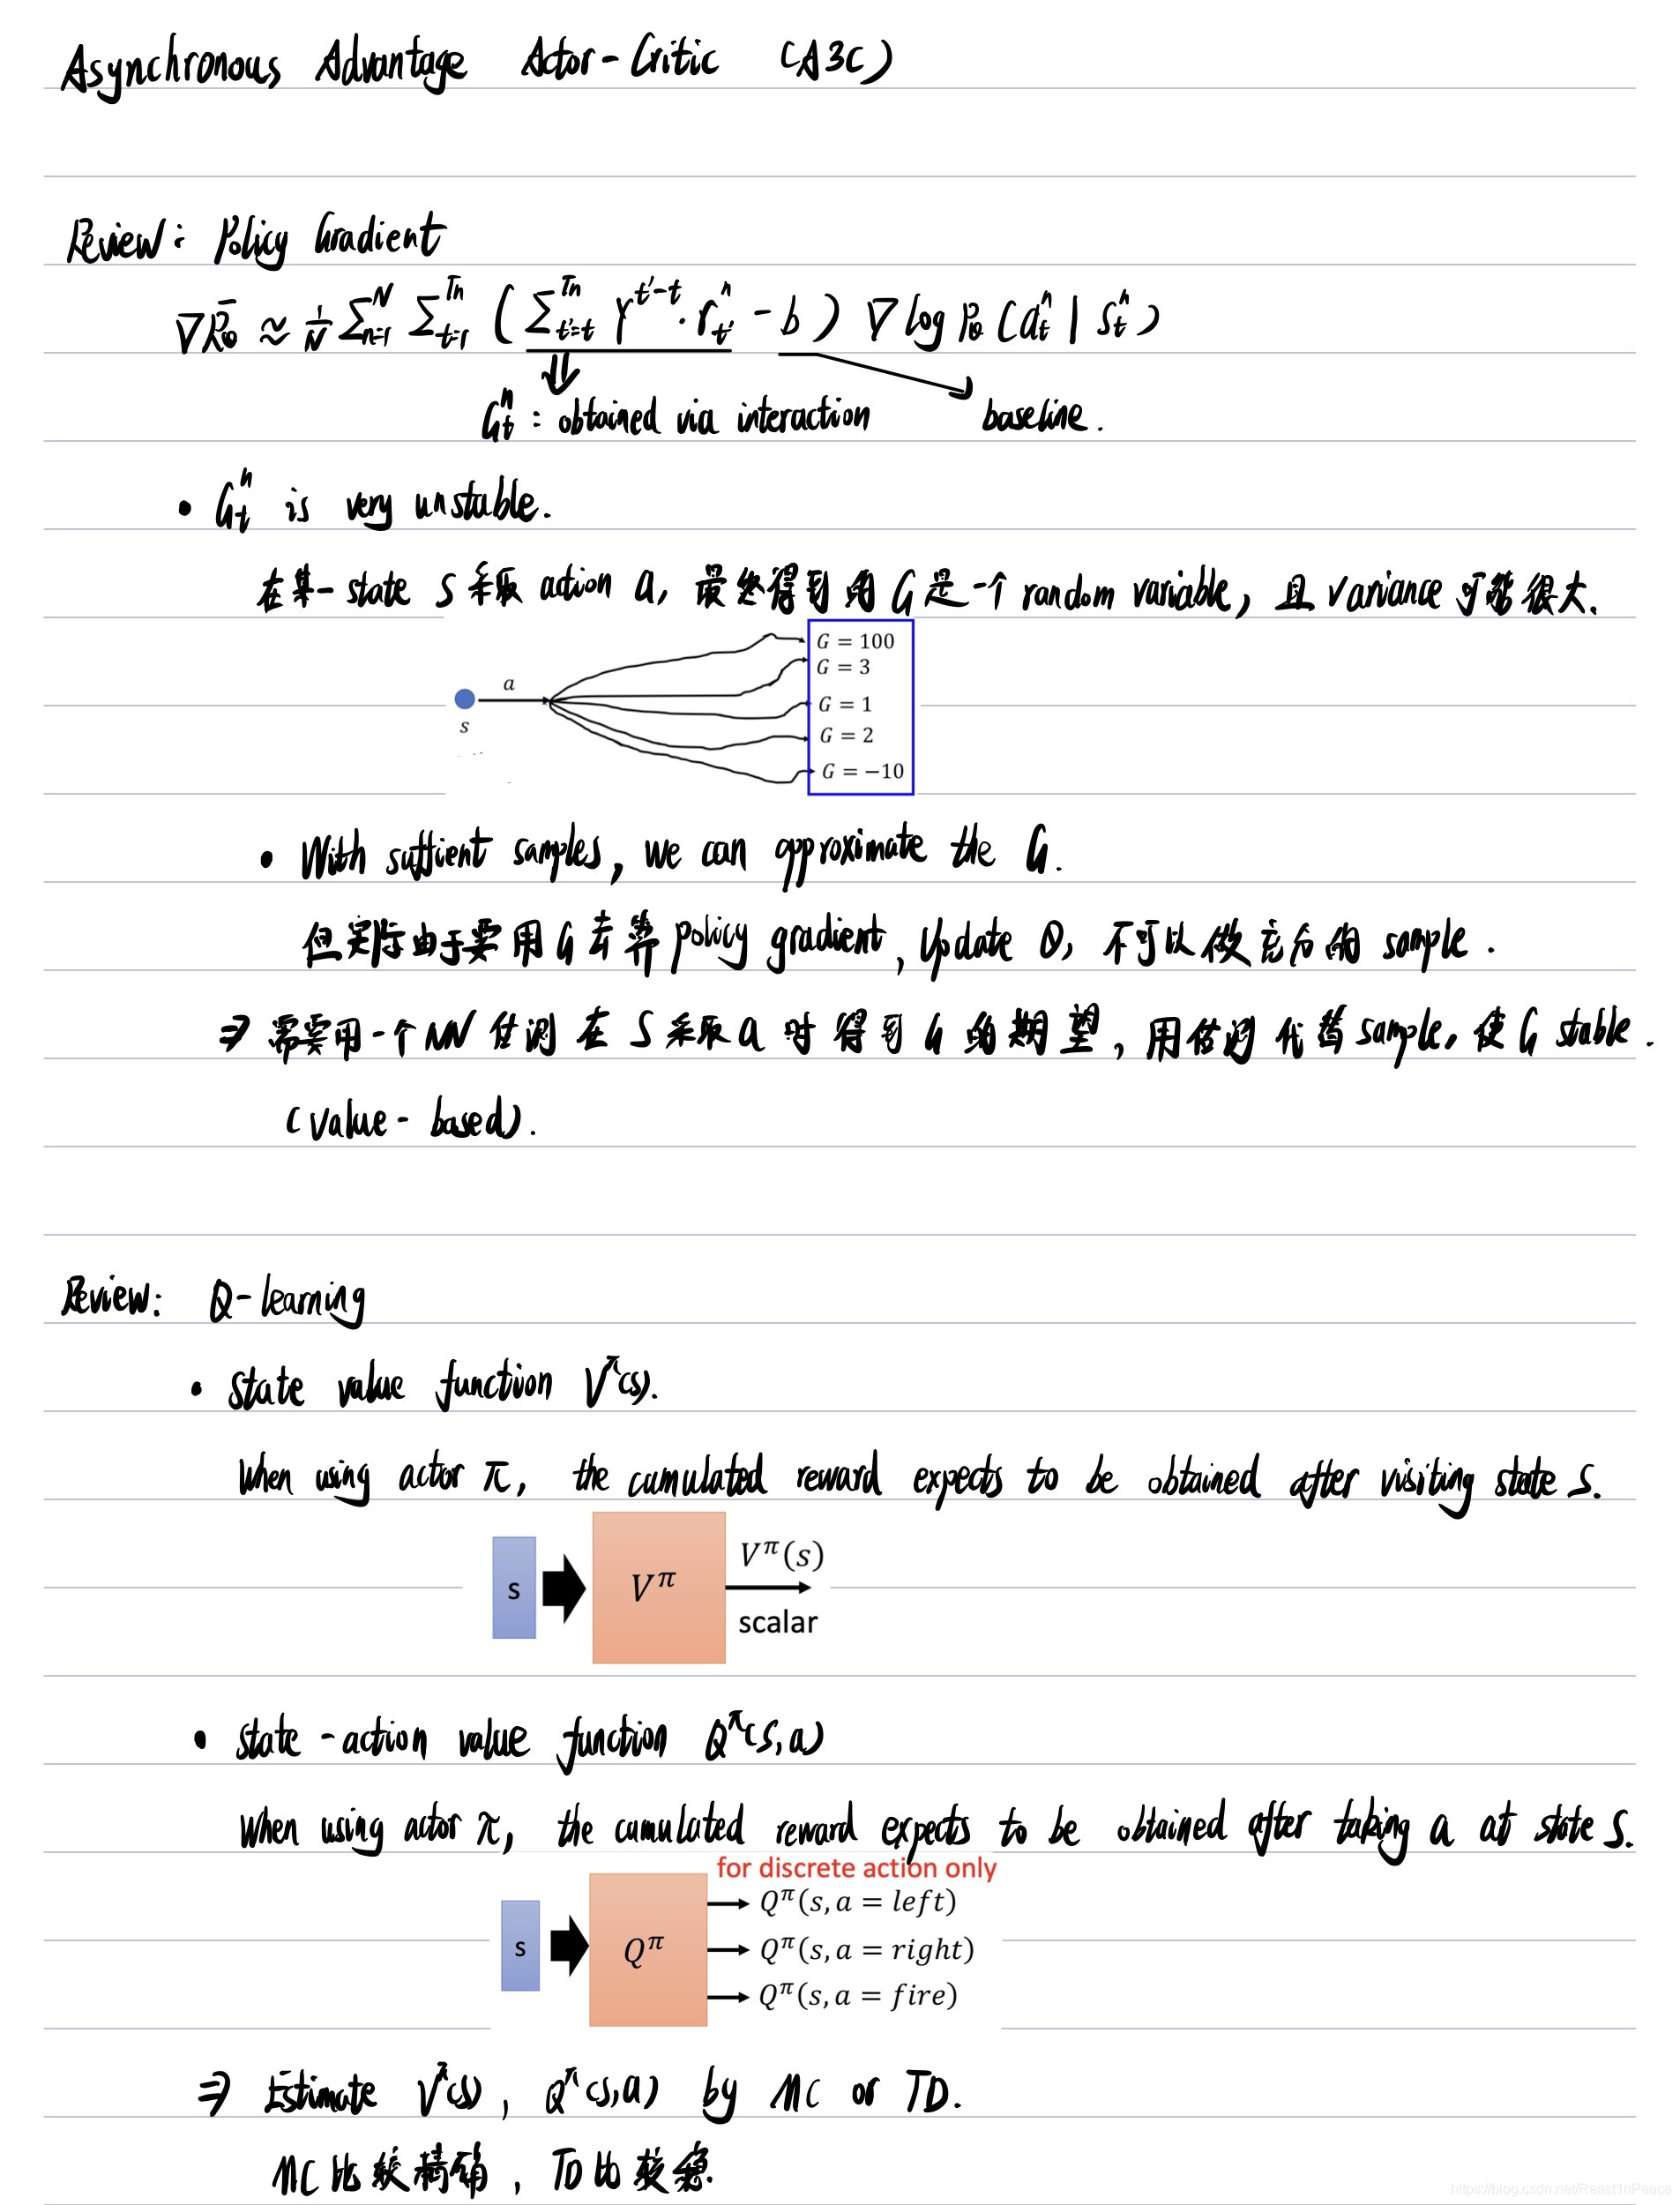 Asynchronous Advantage Actor-Critic (A3C)
Review: Policy Gradient
∇R̄θ ≈ 1/N Σ_{n=1}^{N} Σ_{t=1}^{Tn} ( Σ_{t'=t}^{Tn} γ^{t'-t} · r_{t'}^n - b ) ∇ log Pθ (a_t^n | s_t^n)
G_t^n : obtained via interaction baseline.
• G_t^n is very unstable.
在某一 state s 采取 action a, 最终得到的 G 是一个 random variable, 且 variance 可能很大.
G = 100
G = 3
a
G = 1
s
G = 2
G = −10
• With suffient samples, we can approximate the G.
但实际由于要用 G 去算 policy gradient, update θ, 不可以做充分的 sample.
⇒ 需要用一个 NN 估测在 s 采取 a 时得到 G 的期望, 用估测代替 sample, 使 G stable.
(value-based).
Review: Q-learning
• State value function V^π(s).
When using actor π, the cumulated reward expects to be obtained after visiting state s.
V^π(s)
s V^π
scalar
• State-action value function Q^π(s,a)
When using actor π, the cumulated reward expects to be obtained after taking a at state s.
for discrete action only
Q^π(s, a = left)
s Q^π Q^π(s, a = right)
Q^π(s, a = fire)
⇒ Estimate V^π(s), Q^π(s,a) by MC or TD.
MC比较精确, TD比较稳.
https://blog.csdn.net/Reast1nPeace